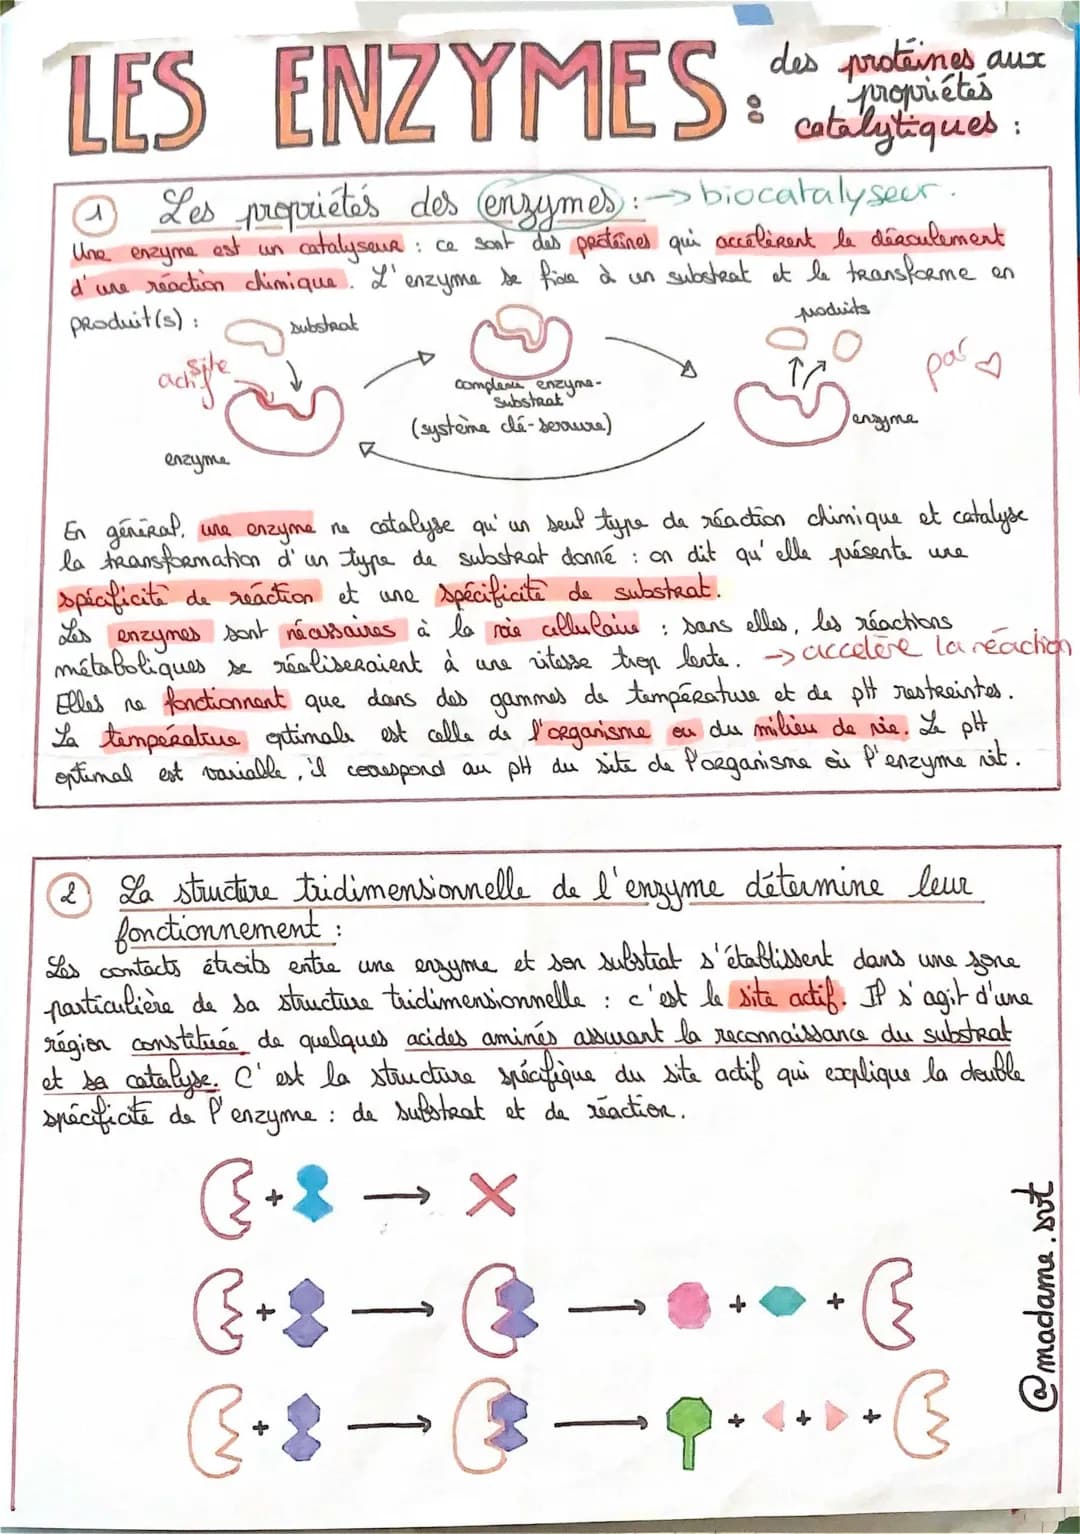 LES ENZYMES : des protéines aux
propriétés
catalytiques :
1 Les propriétés des enzymes : → biocatalyseur.
Une enzyme est un catalyseur : ce sont des protéines qui accélèrent le déroulement
d'une réaction chimique. L'enzyme se fixe à un substrat et le transforme en
produit(s) :
substrat
produits
site
actif
complexe enzyme-
substrat
(système clé-serrure)
enzyme
enzyme
En général, une enzyme ne catalyse qu'un seul type de réaction chimique et catalyse
la transformation d'un type de substrat donné : on dit qu'elle présente une
spécificité de réaction et une spécificité de substrat.
Les enzymes sont nécessaires à la vie cellulaire : sans elles, les réactions
métaboliques se réaliseraient à une vitesse trop lente. → accelère la réaction
Elles ne fonctionnent que dans des gammes de température et de pH restreintes.
La température optimale est celle de l'organisme ou du milieu de vie. Le pH
optimal est variable, il correspond au pH du site de l'organisme où l'enzyme vit.
2 La structure tridimensionnelle de l'enzyme détermine leur
fonctionnement :
Les contacts étroits entre une enzyme et son substrat s'établissent dans une zone
particulière de sa structure tridimensionnelle : c'est le site actif. Il s'agit d'une
région constituée de quelques acides aminés assurant la reconnaissance du substrat
et sa catalyse. C'est la structure spécifique du site actif qui explique la double
spécificité de l'enzyme : de substrat et de réaction.
+ → X
+ → → + +
+ → → + + +
@madame.svt